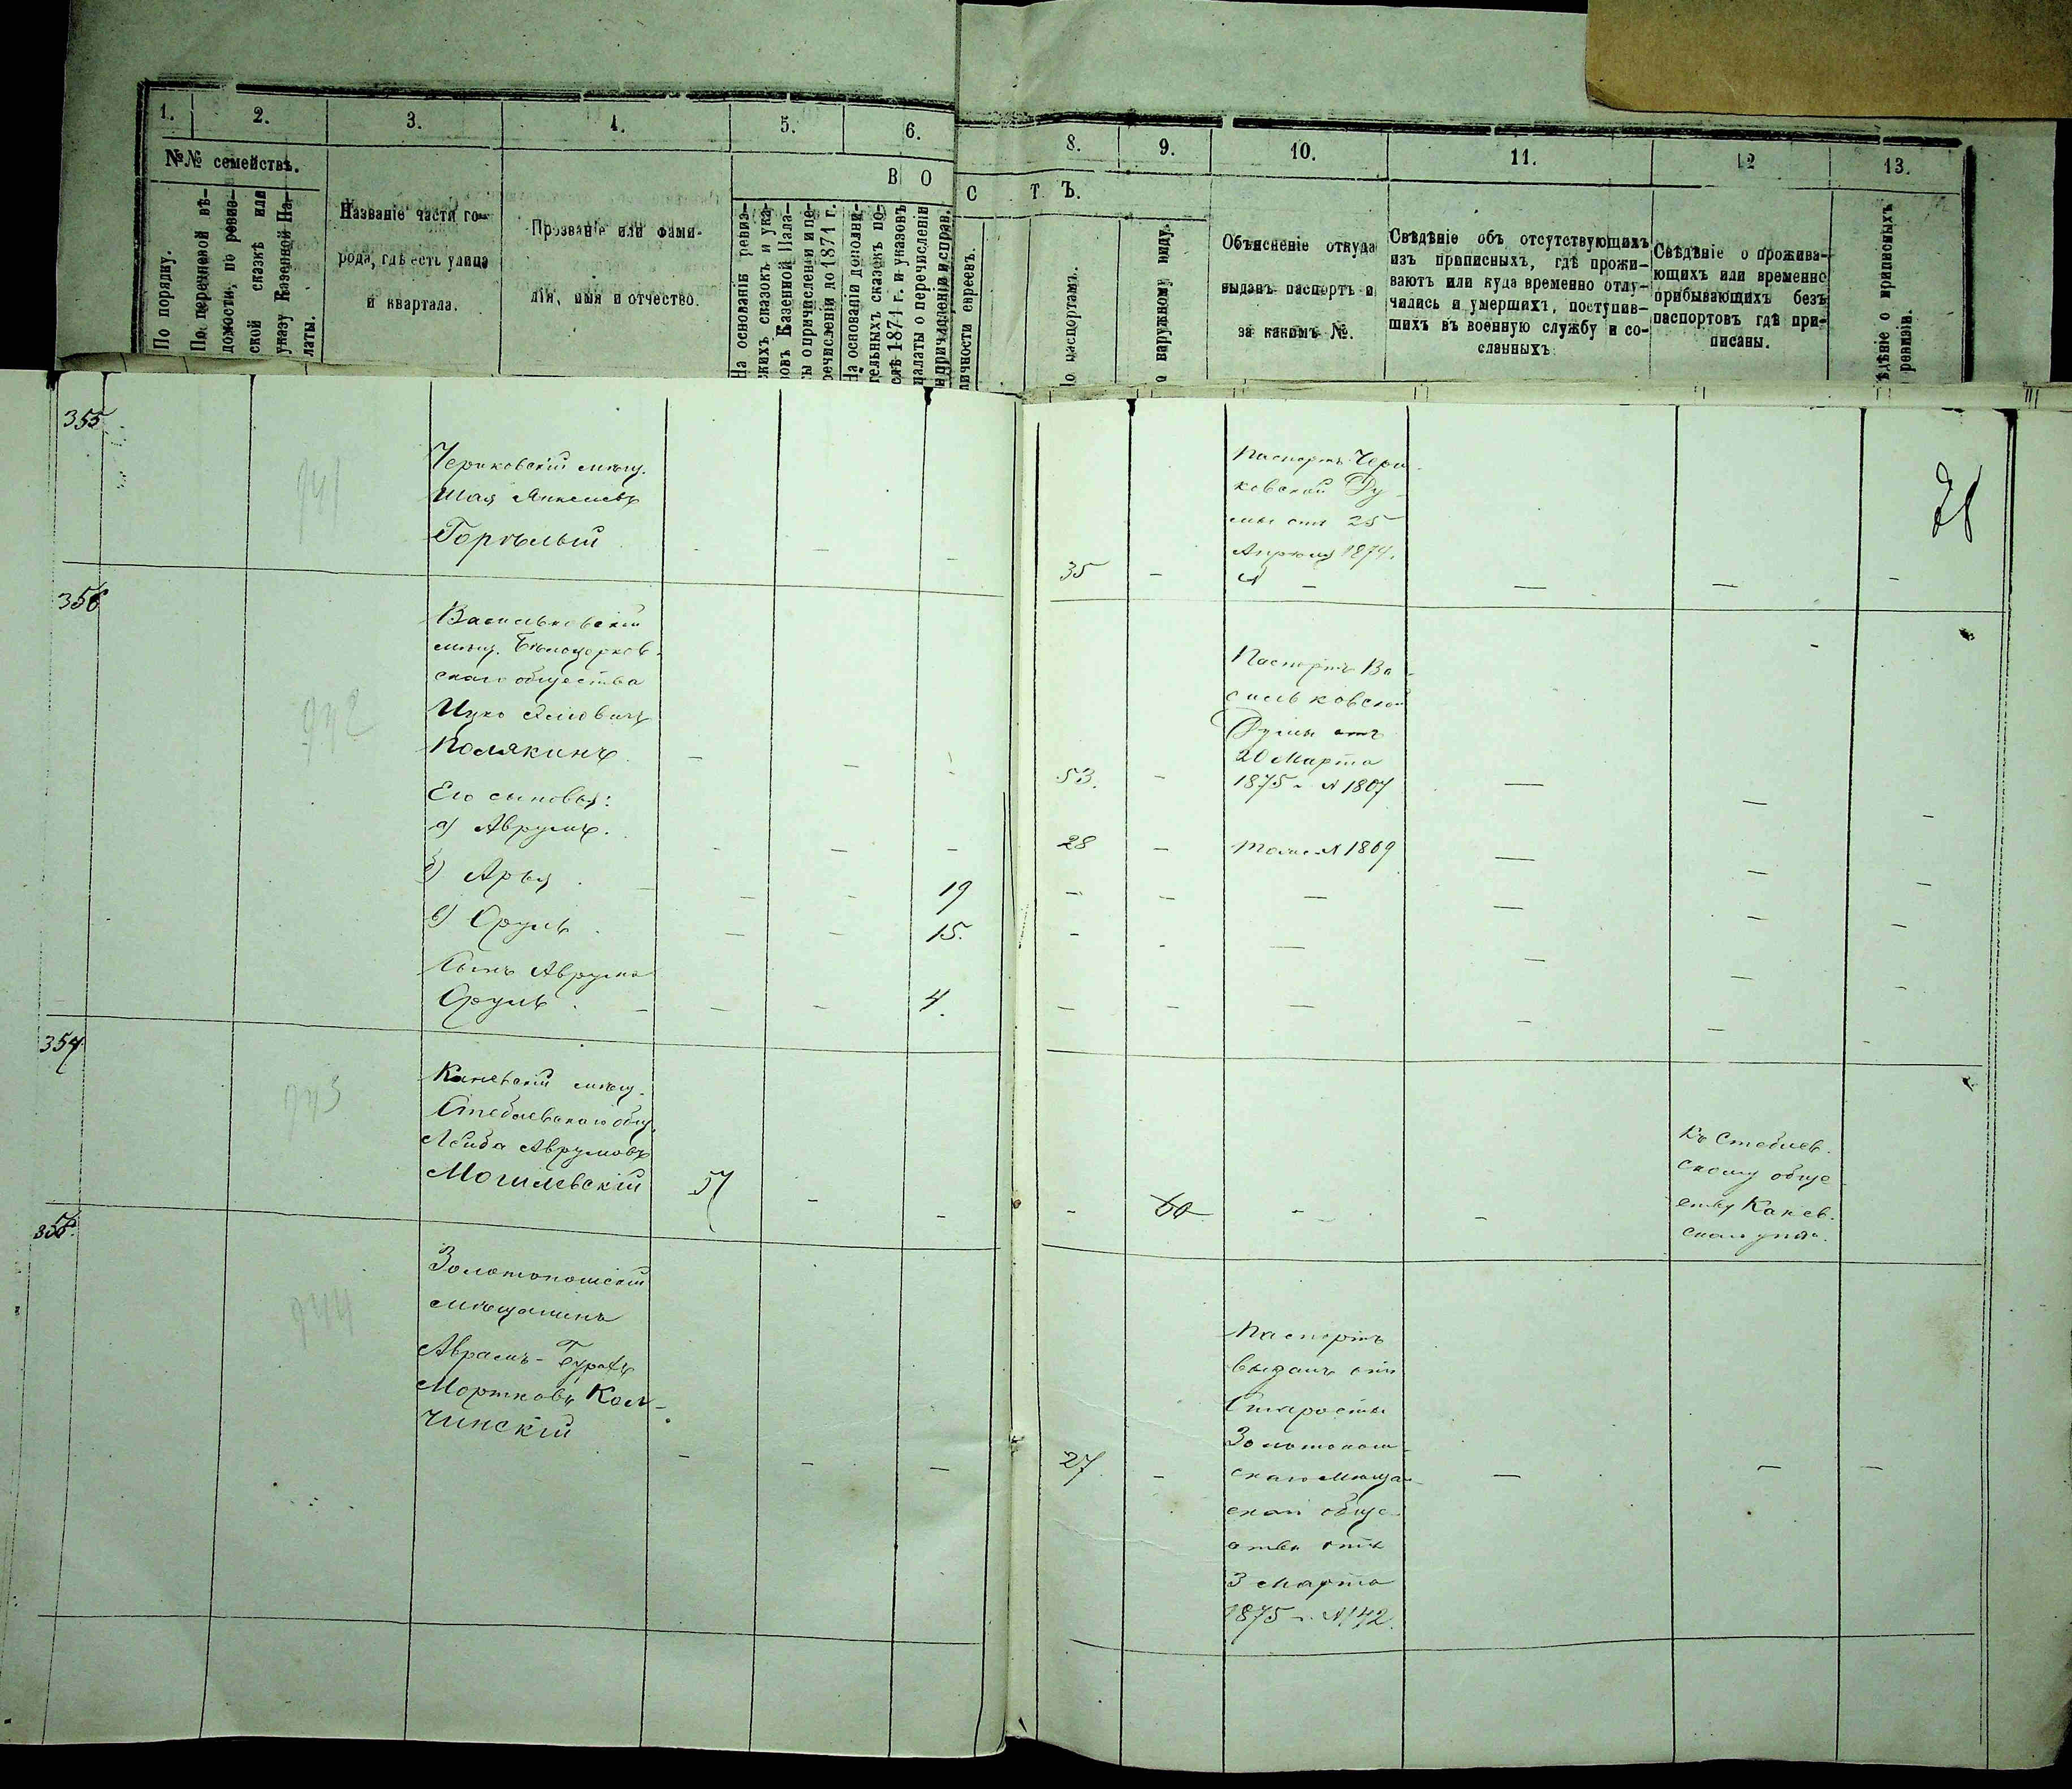 1.
2.
3.
4.
5.
6.
8.
9.
10.
11.
12
13.
№№ семействъ.
По порядку.
По перечневой вѣ-
домости, по ревиз-
ской сказкѣ или
указу Казенной Па-
латы.
Названіе части го-
рода, гдѣ есть улица
и квартала.
Прозваніе или фами-
лія, имя и отчество.
В О
С Т Ъ.
На основаніи ревиз-
скихъ сказокъ и ука-
зовъ Казенной Пала-
ты о причисленіи и пе-
речисленіи до 1871 г.
На основаніи дополни-
тельныхъ сказокъ по-
слѣ 1871 г. и указовъ
палаты о перечисленіи
и причисленіи и справ.
личности евреевъ.
по паспортамъ.
о наружному виду.
Объясненіе откуда
выданъ паспортъ и
за какимъ №.
Свѣдѣніе объ отсутствующихъ
изъ приписныхъ, гдѣ прожи-
ваютъ или куда временно отлу-
чились и умершихъ, поступив-
шихъ въ военную службу и со-
сланныхъ
Свѣдѣніе о прожива-
ющихъ или временно
прибывающихъ безъ
паспортовъ гдѣ при-
писаны.
ѣдѣніе о приписныхъ
ревизіи.
355
941
Чериковскій мѣщ.
Шая Янкелевъ
Горѣлый - - -
35 -
Паспортъ Чери-
ковской Ду-
мы отъ 25
Апрѣля 1874.
№ - - - -
356
942
Васильковскій
мѣщ. Бѣлоцерков-
скаго общества
Ицко
Полякинъ - - -
53. -
Паспортъ Ва-
сильковской
Думы отъ
20 Марта
1875 г. № 1807 - - -
Его сыновья:
а) Аврумъ. - - - 28 - Тоже № 1809 - - -
б) Арья - - 19 - - - - - -
в) Сруль - - 15. - - - - - -
Сынъ Аврума
Сруль - - 4. - - - - - -
357
943
Каневскій мѣщ.
Стеблевскаго общ.
Лейба Аврумовъ
Могилевскій 57 - - - 60 - -
Къ Стеблев-
скому обще-
ству Канев-
скаго уѣзд.
358.
944
Золотоношскій
мѣщанинъ
Аврамъ-
Мортковъ Кол-
чинскій - - -
27. -
Паспортъ
выданъ отъ
Старосты
Золотонош-
скаго Мѣща-
скаго обще-
ства отъ
3 Марта
1875 г. № 142. - - -